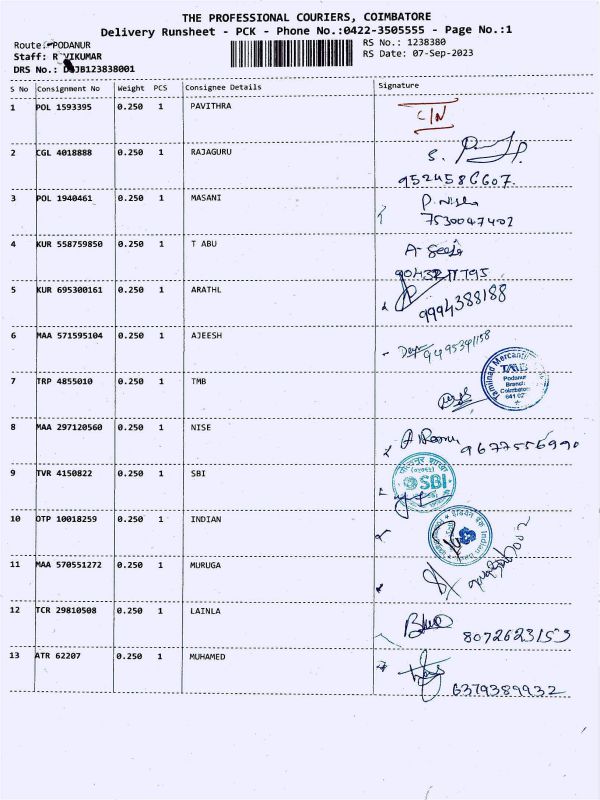 THE PROFESSIONAL COURIERS, COIMBATORE
Delivery Runsheet - PCK - Phone No.:0422-3505555 - Page No.:1
Route: PODANUR RS No.: 1238380
Staff: R VIKUMAR RS Date: 07-Sep-2023
DRS No.: JB123838001
S No Consignment No Weight PCS Consignee Details Signature
1 POL 1593395 0.250 1 PAVITHRA C/N
2 CGL 4018888 0.250 1 RAJAGURU S.
9524586607.
3 POL 1940461 0.250 1 MASANI P. Nisha
7530047402
4 KUR 558759850 0.250 1 T ABU A-
5 KUR 695300161 0.250 1 ARATHL 9994388188
6 MAA 571595104 0.250 1 AJEESH 9495341158
7 TRP 4855010 0.250 1 TMB Tamilnad Mercantile
TMB
Podanur
Branch
Coimbatore
641 02
8 MAA 297120560 0.250 1 NISE 9677556990
9 TVR 4150822 0.250 1 SBI SBI
10 OTP 10018259 0.250 1 INDIAN Indian
11 MAA 570551272 0.250 1 MURUGA
12 TCR 29810508 0.250 1 LAINLA
8072623153
13 ATR 62207 0.250 1 MUHAMED
6379389932